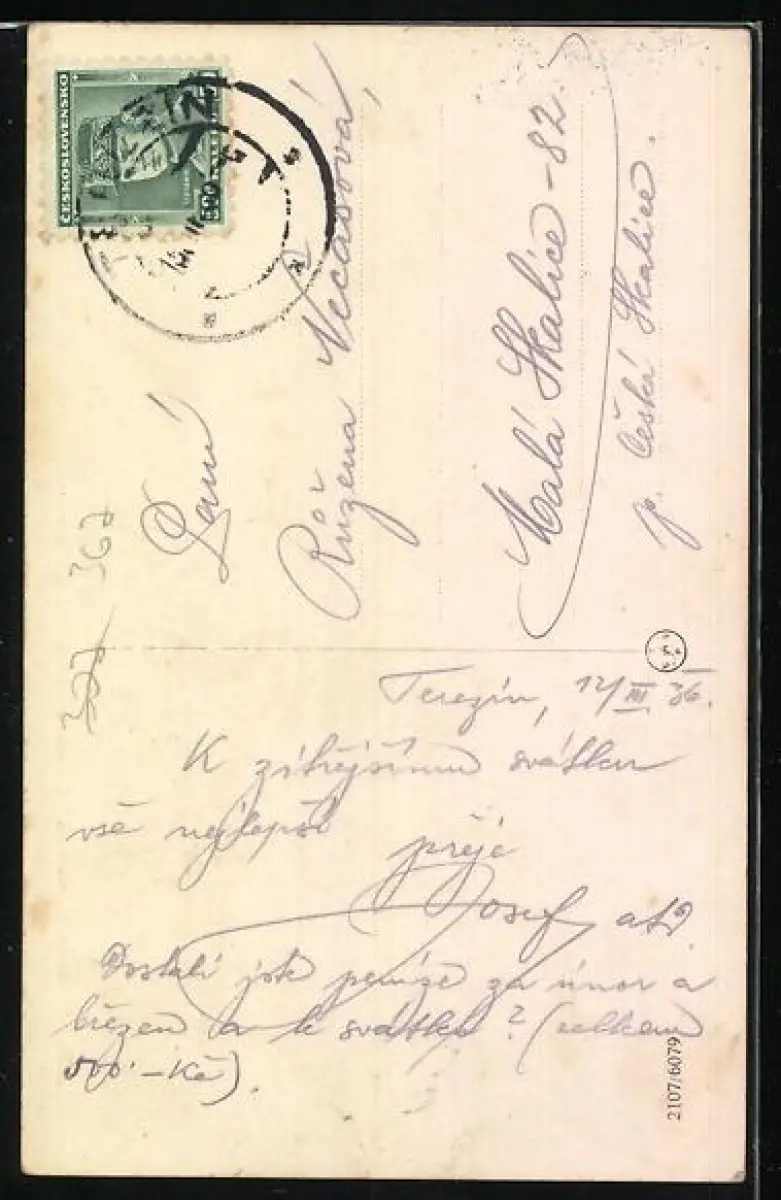 ČESKOSLOVENSKO
Paní
Růžena Nečasová,
Malá Skalice - 82.
p. Česká Skalice.
367
Terezín, 12/III 36.
K zítřejšímu svátku
vše nejlepší přeje
Josef
Dostali jste peníze za únor a
březen a k svátku? (celkem
500·-Kč).
2107/6079